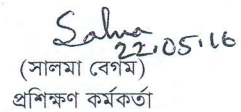 Salma
22.05.16
(সালমা বেগম)
প্রশিক্ষণ কর্মকর্তা